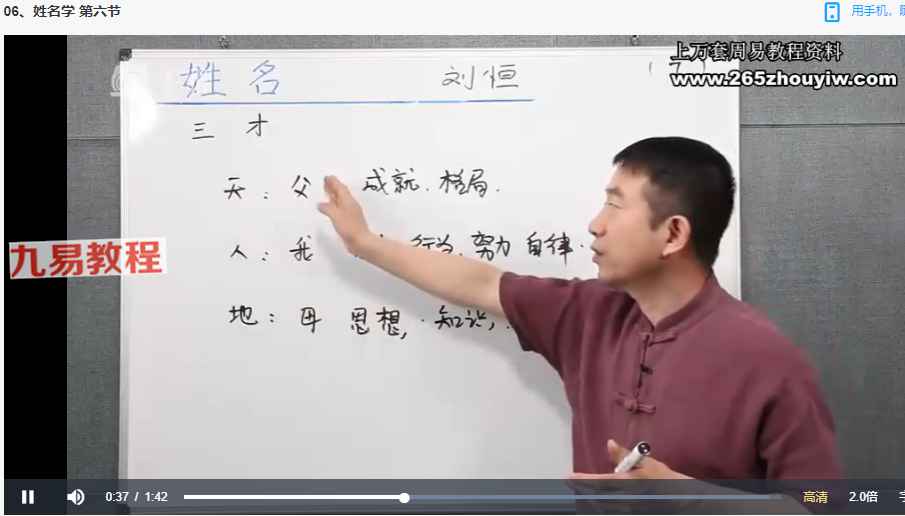 06、姓名学 第六节
用手机
上万套周易教程资料
www.265zhouyiw.com
姓名 刘恒
三才
天：父 成就．格局．
九易教程
人：我 行为．努力 自律．
地：母 思想，知识，
0:37 / 1:42
高清 2.0倍